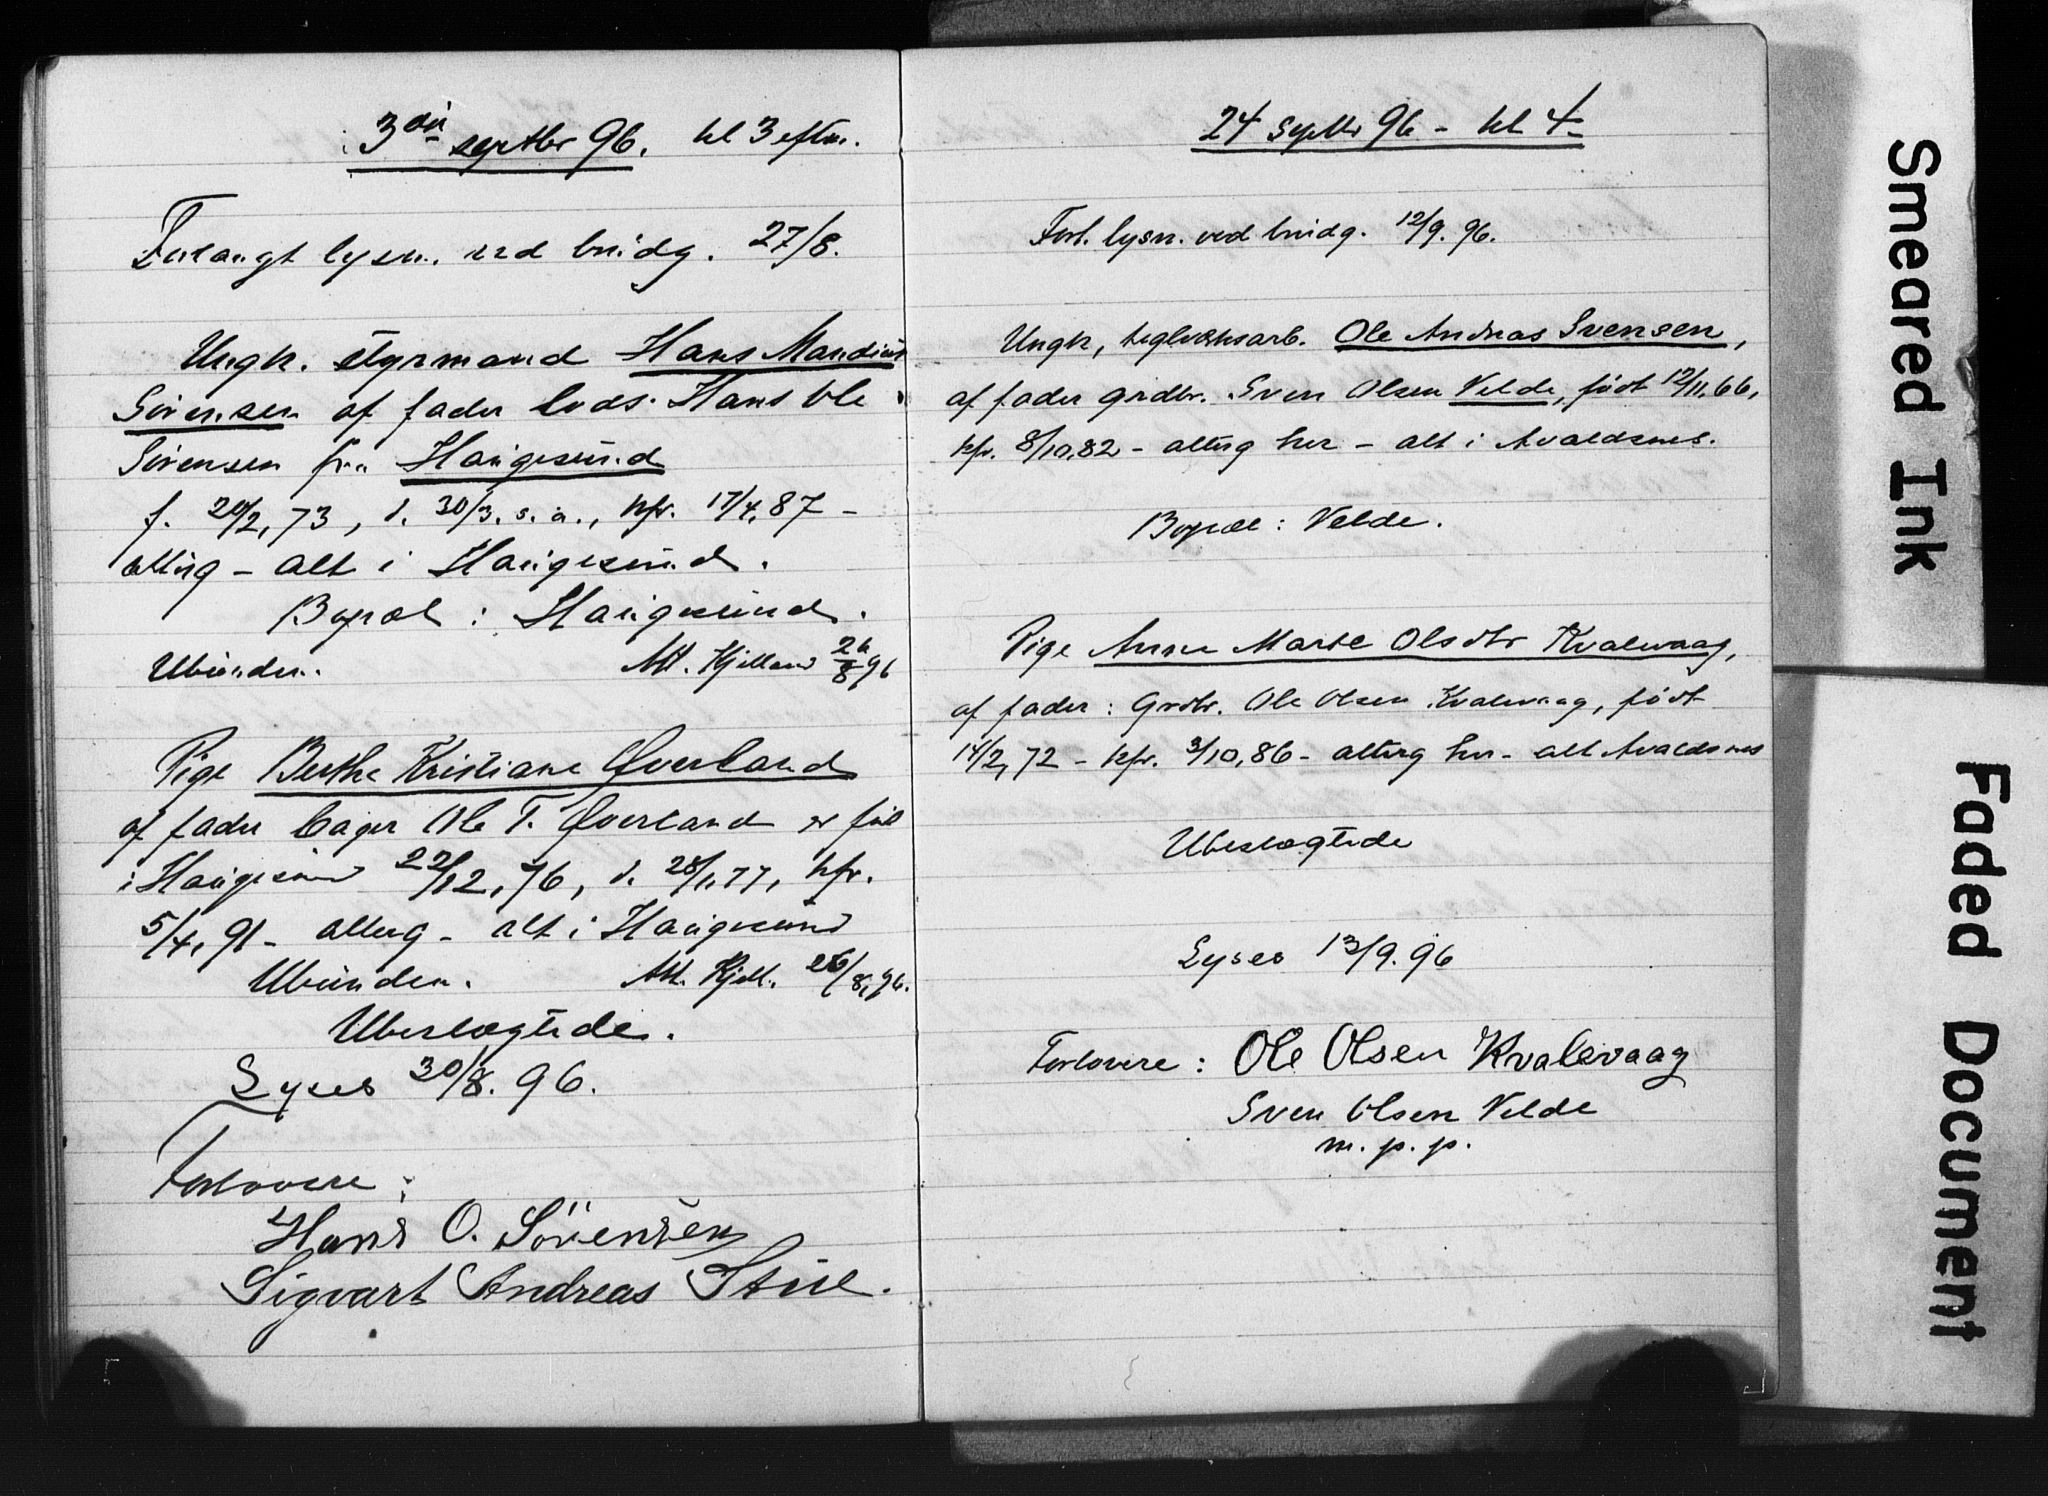 3die septbr 96. kl 3 eftm.
Forlangt lysn. ved brudg. 27/8.
Ungk. styrmand Hans Mandius
Sørensen af fader lods Hans Ole
Sørensen fra Haugesund
f. 20/2, 73, d. 30/3. s. a., kfr. 17/4, 87 –
altérg – alt i Haugesund.
Bopæl : Haugesund.
Ubunden. Att. Kjelland 26/8 96
Pige Berthe Kristiane Øverland
af fader bager Ole T. Øverland er født
i Haugesund 22/12, 76, d. 28/1, 77, kfr.
5/4, 91 – alterg – alt i Haugesund
Ubunden. Att. Kjell. 26/8, 96.
Ubeslægtede.
Lyses 30/8. 96.
Forlovere :
Hans O. Sörensen
Sigvart Andreas Stüle.
24 septbr 96 – kl 4
Forl. lysn. ved brudg. 12/9. 96.
Ungk, teglverksarb. Ole Andreas Svensen,
af fader grdbr. Sven Olsen Velde, født 12/11, 66,
kfr. 8/10, 82 – alterg her – alt i Avaldsnes.
Bopæl : Velde.
Pige Anne Marte Olsdtr Kvalevaag,
af fader : Grdbr. Ole Olsen Kvalevaag, født
14/2, 72 – kfr. 3/10, 86 – alterg her – alt Avaldsnes
Ubeslægtede
Lyses 13/9. 96
Forlovere : Ole Olsen Kvalevaag
Sven Olsen Velde
m. p. p.
Smeared Ink
Faded Document